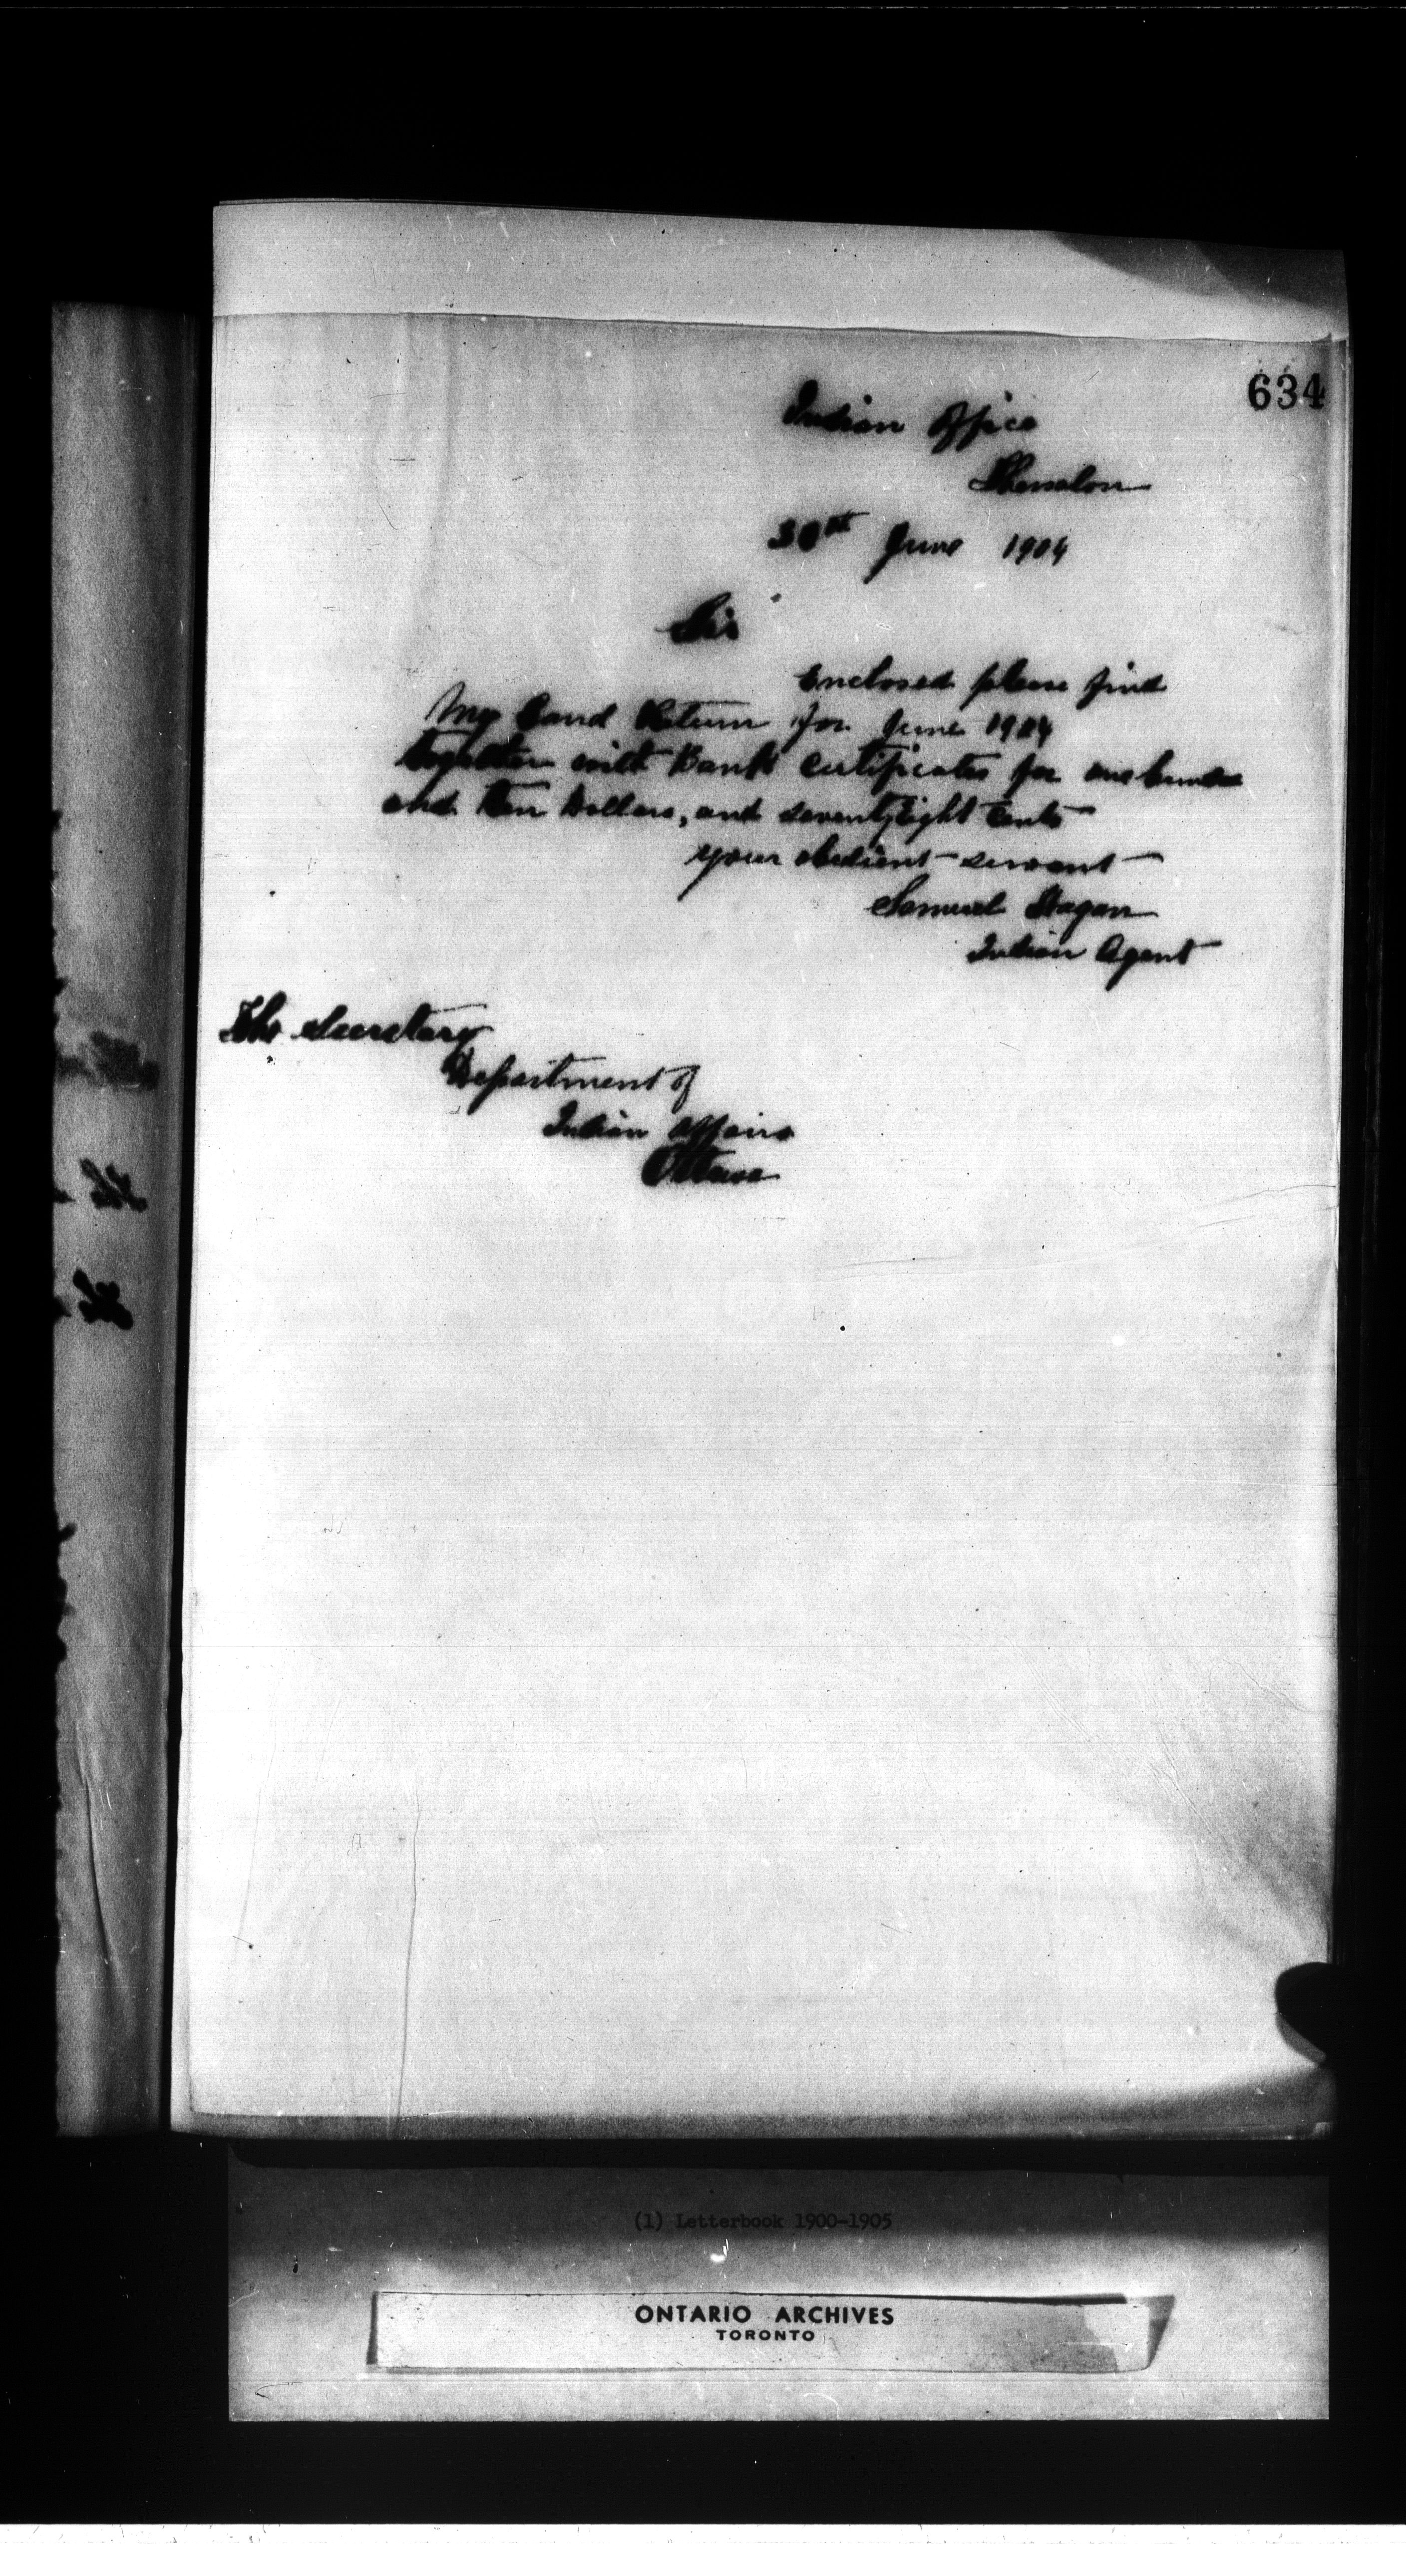 634
Indian Office
Thessalon
30th June 1904
Sir
Enclosed please find
My Land Return for June 1904
together with Bank Certificates for one hundred
and Ten Dollars, and seventy eight Cents
your obedient servant
Samuel Hagan
Indian Agent
The Secretary
Department of
Indian Affairs
Ottawa
(1) Letterbook 1900-1905
ONTARIO ARCHIVES
TORONTO